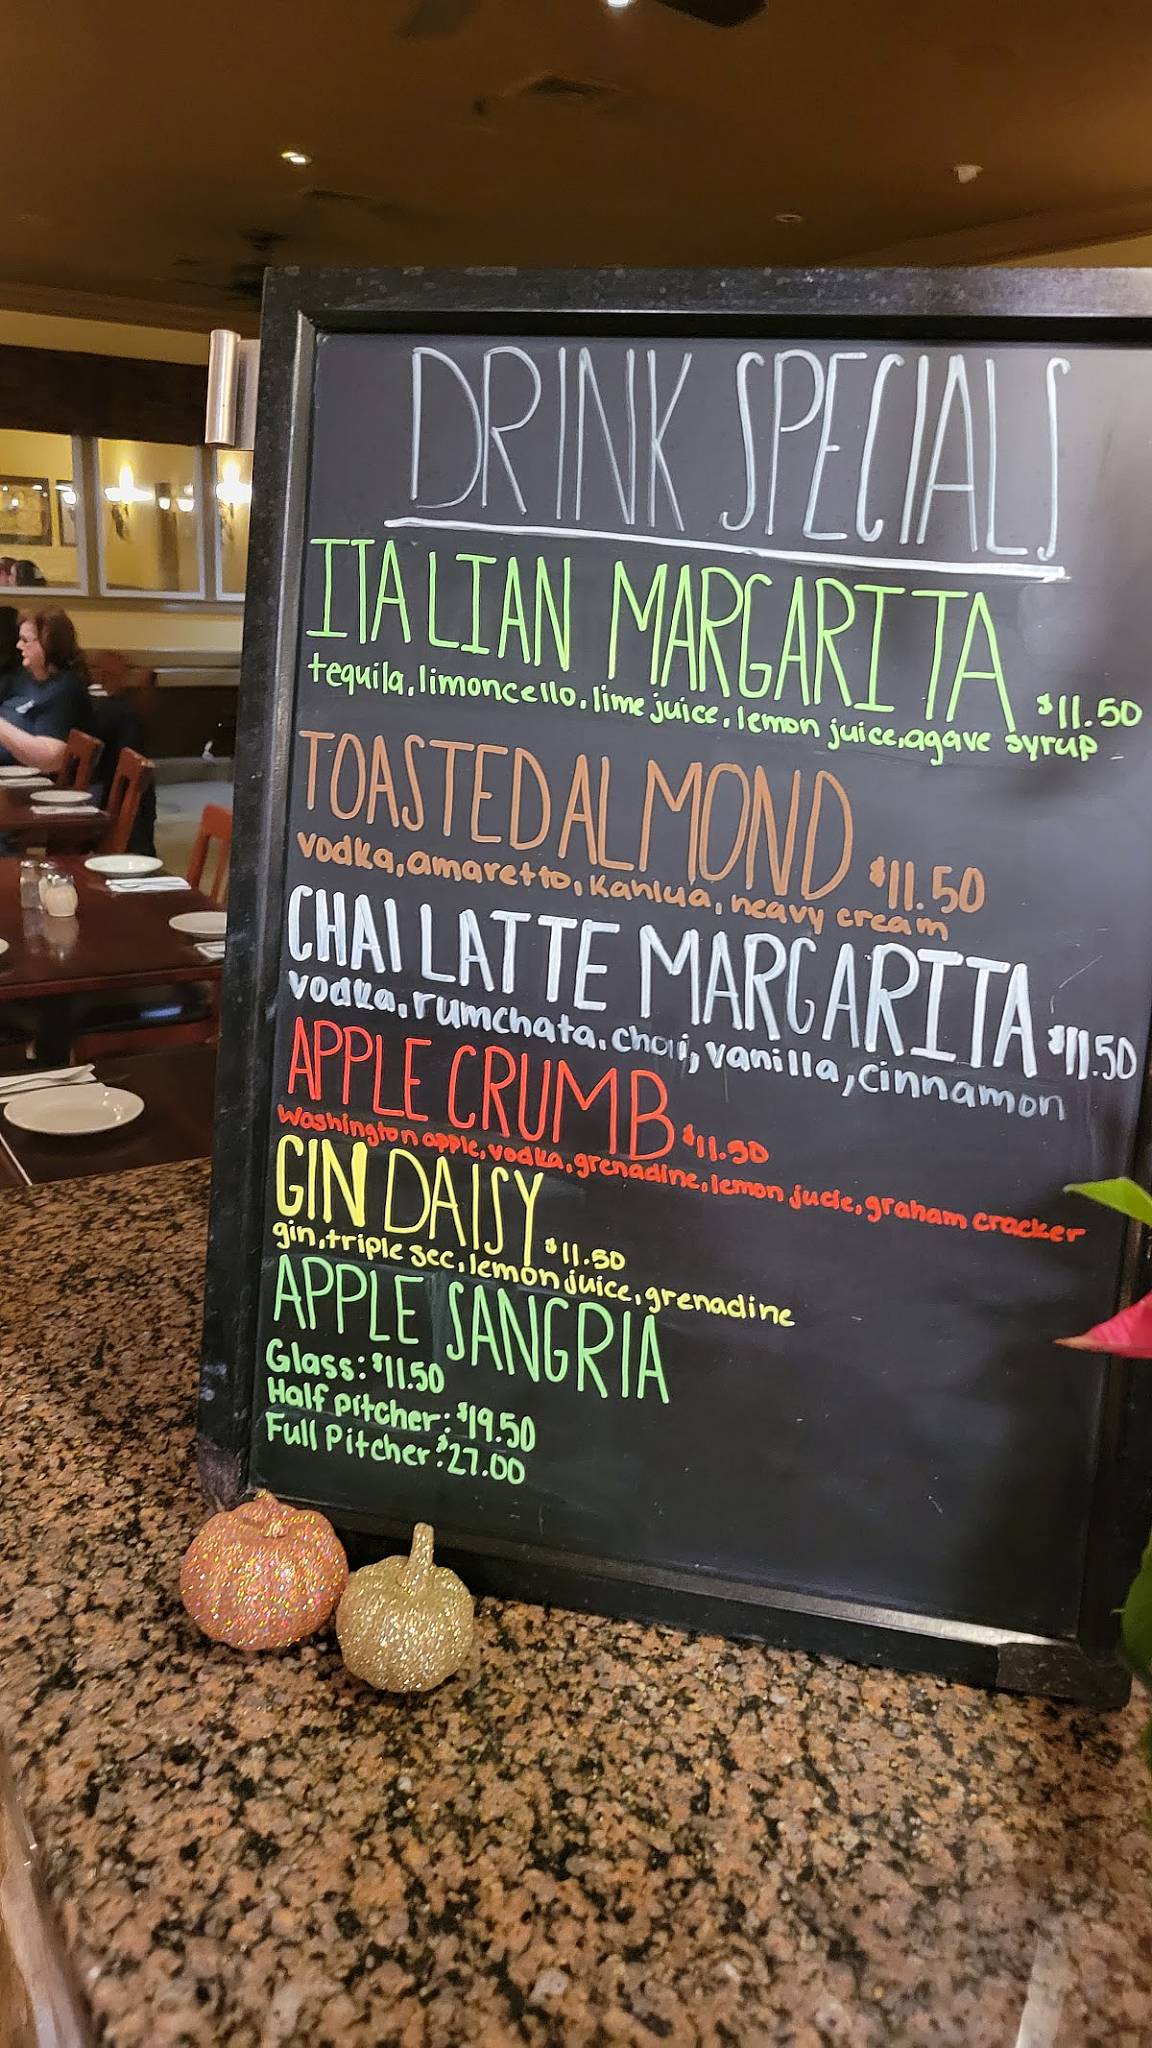 DRINK SPECIALS
ITALIAN MARGARITA $11.50
tequila, limoncello, lime juice, lemon juice, agave syrup
TOASTED ALMOND $11.50
vodka, amaretto, Kahlua, heavy cream
CHAI LATTE MARGARITA $11.50
vodka, rumchata, chai, vanilla, cinnamon
APPLE CRUMB $11.50
Washington apple, vodka, grenadine, lemon jucie, graham cracker
GIN DAISY $11.50
gin, triple sec, lemon juice, grenadine
APPLE SANGRIA
Glass: $11.50
Half pitcher: $19.50
Full Pitcher: $27.00